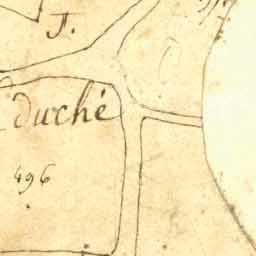 J.
duché
496